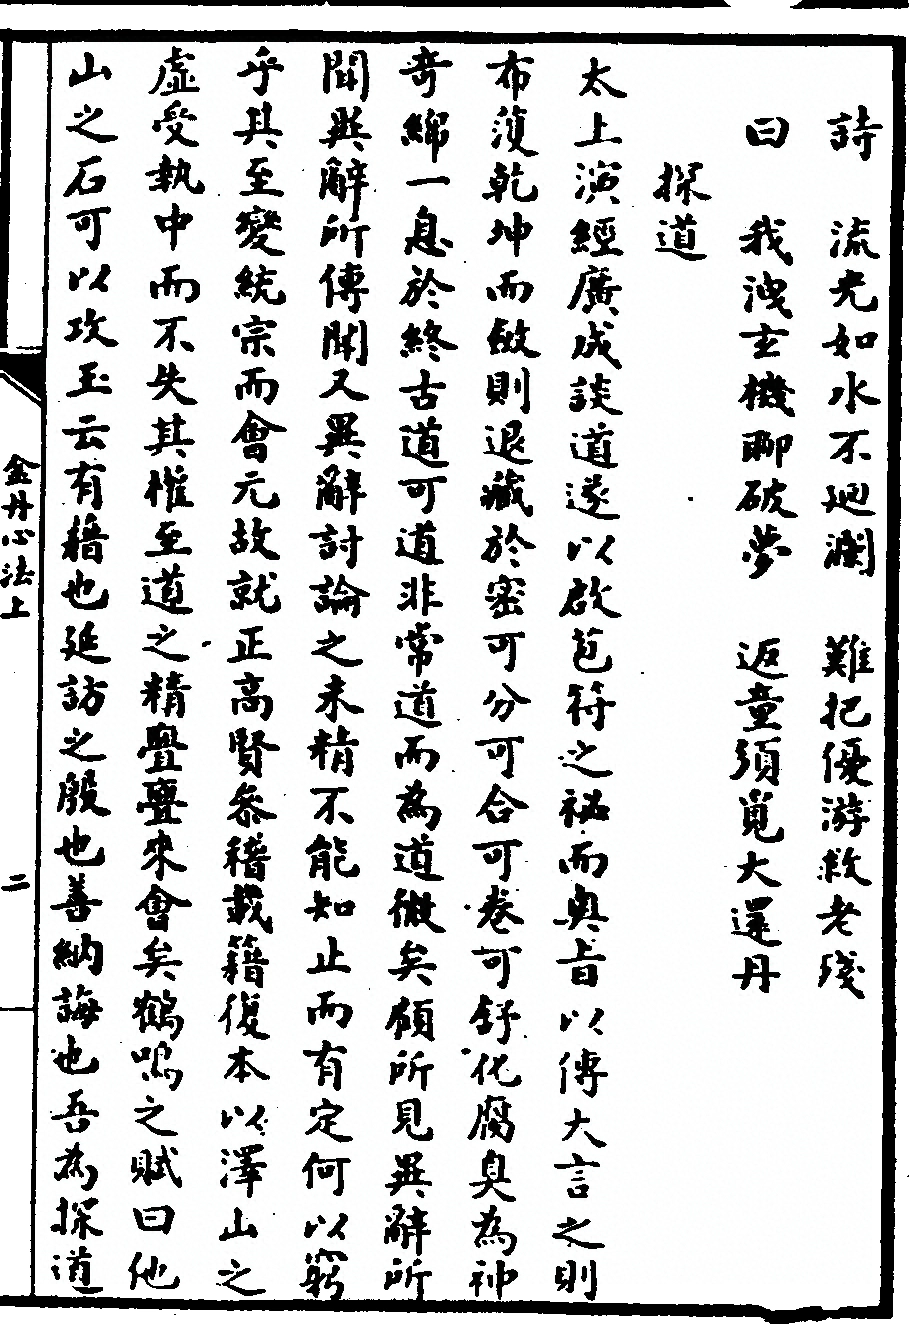 詩　流光如水不迴瀾　難把優游救老殘
曰　我洩玄機聊破夢　返童須覓大還丹
探道
太上演經廣成談道遂以啟苞符之祕而奥旨以傳大言之則
布濩乾坤而斂則退藏於密可分可合可卷可舒化腐臭為神
奇綿一息於終古道可道非常道而為道微矣顧所見異辭所
聞異辭所傳聞又異辭討論之未精不能知止而有定何以窮
乎其至變統宗而會元故就正高賢叅稽載籍復本以澤山之
虛受執中而不失其權至道之精亹亹來會矣鶴鳴之賦曰他
山之石可以攻玉云有藉也延訪之殷也善納誨也吾為探道
金丹心法上
二